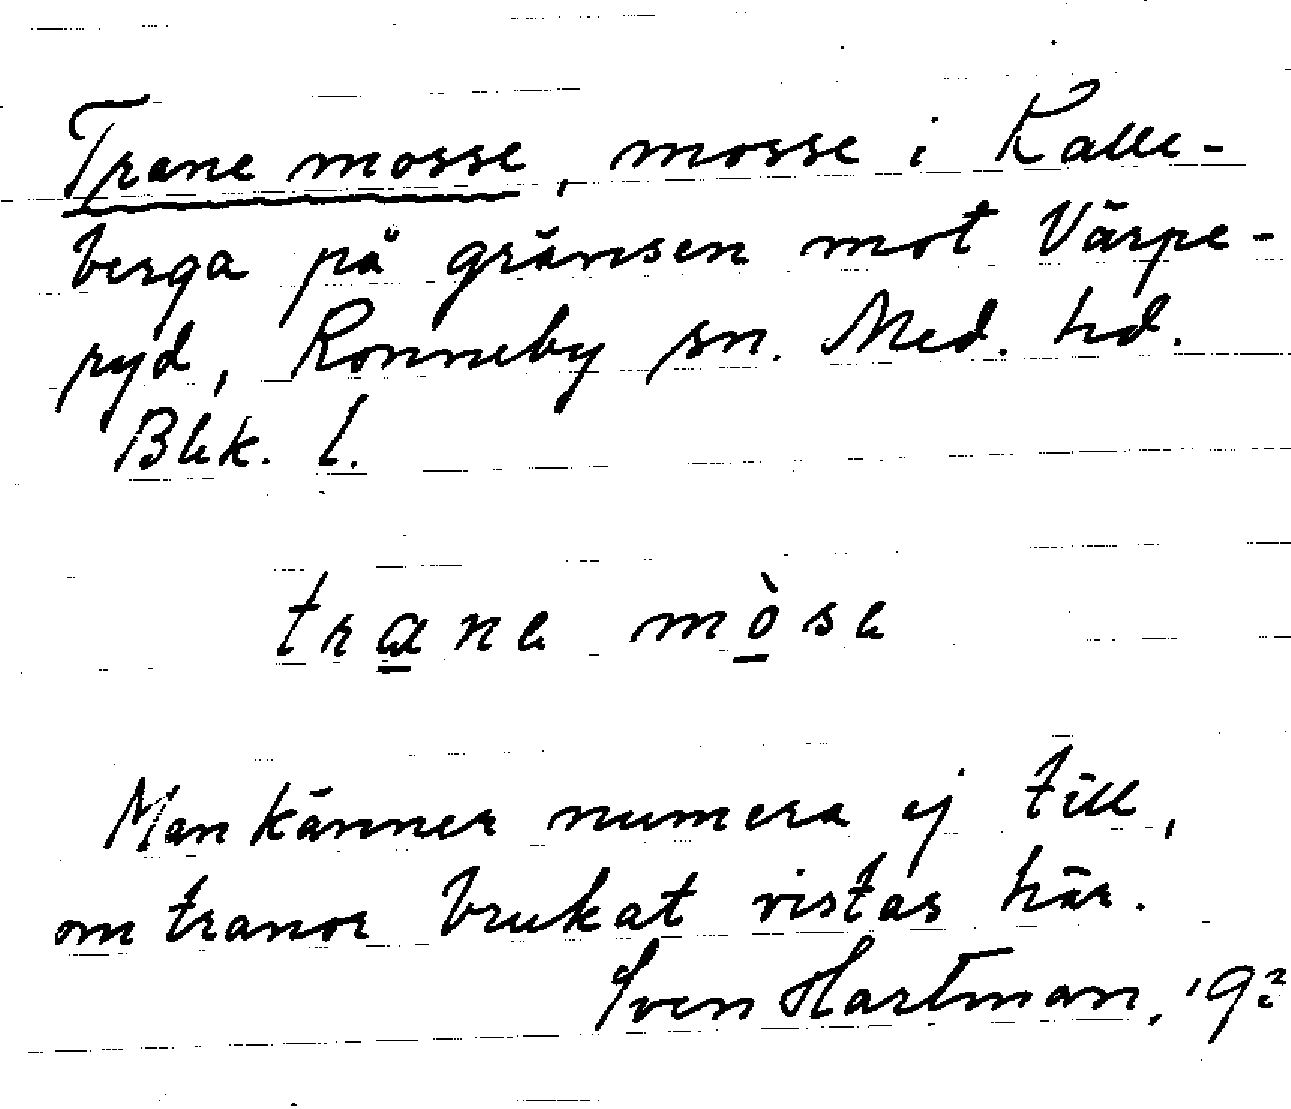 Trane mosse, mosse i Kalle-
berga på gränsen mot Värpe-
ryd, Ronneby sn. Med. hd.
Blek. l.
trane mòse
Man känner numera ej till,
om tranor brukat vistas här.
Sven Hartman,